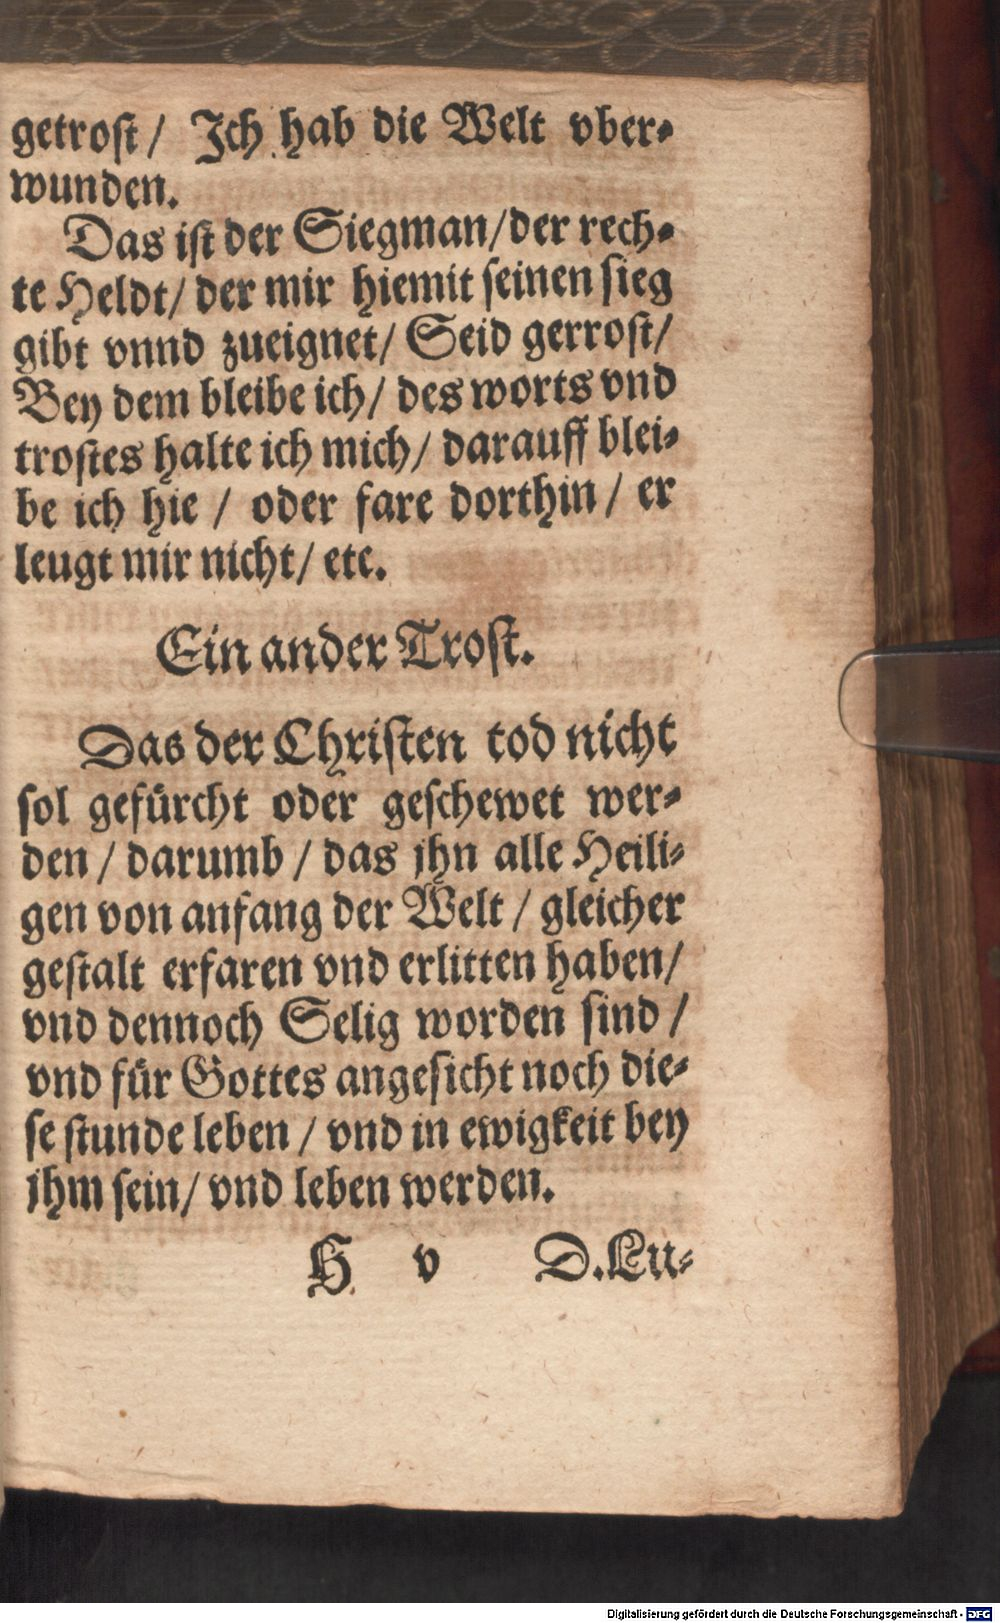 getrost/ Ich hab die Welt vber⸗
wunden.
Das ist der Siegman/der rech⸗
te Heldt/ der mir hiemit seinen sieg
gibt vnnd zueignet/ Seid gerrost/
Bey dem bleibe ich/ des worts vnd
trostes halte ich mich/ darauff blei⸗
be ich hie / oder fare dorthin/ er
leugt mir nicht/ etc.
Ein ander Trost.
Das der Christen tod nicht
sol gefürcht oder geschewet wer⸗
den / darumb / das jhn alle Heili⸗
gen von anfang der Welt / gleicher
gestalt erfaren vnd erlitten haben/
vnd dennoch Selig worden sind /
vnd für Gottes angesicht noch die⸗
se stunde leben / vnd in ewigkeit bey
jhm sein/ vnd leben werden.
H v D.Lu⸗
Digitalisierung gefördert durch die Deutsche Forschungsgemeinschaft - DFG